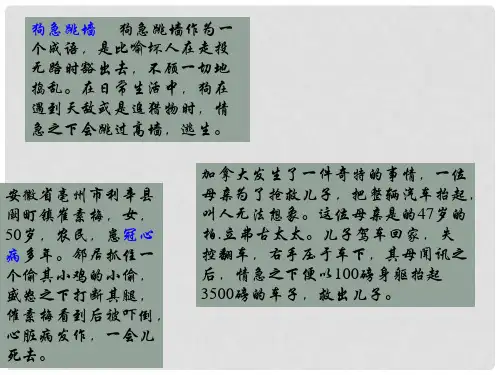 狗急跳墙 狗急跳墙作为一
个成语，是比喻坏人在走投
无路时豁出去，不顾一切地
捣乱。在日常生活中，狗在
遇到天敌或是追猎物时，情
急之下会跳过高墙，逃生。
安徽省亳州市利辛县
阚町镇崔素梅，女，
50岁，农民，患冠心
病多年。邻居抓住一
个偷其小鸡的小偷，
盛怒之下打断其腿，
催素梅看到后被吓倒，
心脏病发作，一会儿
死去。
加拿大发生了一件奇特的事情，一位
母亲为了抢救儿子，把整辆汽车抬起，
叫人无法想象。这位母亲是的47岁的
柏.立弗古太太。儿子驾车回家，失
控翻车，右手压于车下，其母闻讯之
后，情急之下便以100磅身躯抬起
3500磅的车子，救出儿子。